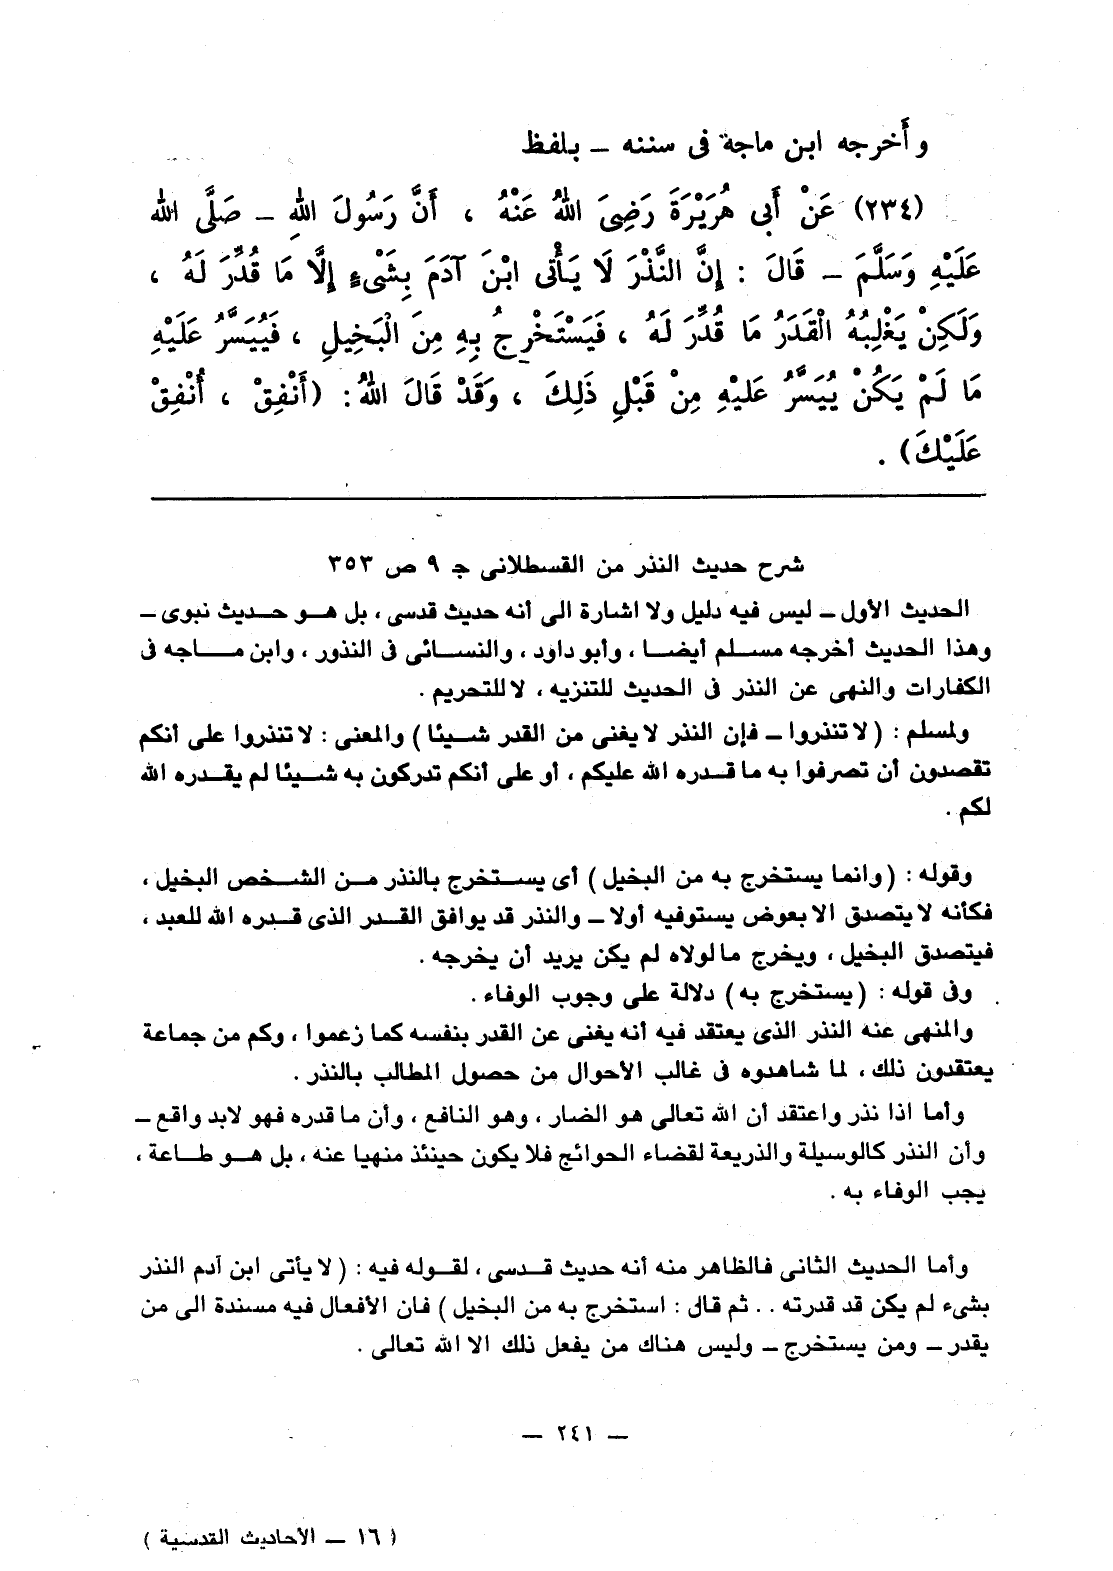 وأَخرجه ابن ماجة فى سننه – بلفظ
(٢٣٤) عَنْ أَبِى هُرَيْرَةَ رَضِىَ اللهُ عَنْهُ ، أَنَّ رَسُولَ اللهِ – صَلَّى اللهُ
عَلَيْهِ وَسَلَّمَ – قَالَ : إِنَّ النَّذْرَ لَا يَأْتِى ابْنَ آدَمَ بِشَىْءٍ إِلَّا مَا قُدِّرَ لَهُ ،
وَلَكِنْ يَغْلِبُهُ الْقَدَرُ مَا قُدِّرَ لَهُ ، فَيَسْتَخْرِجُ بِهِ مِنَ الْبَخِيلِ ، فَيُيَسَّرُ عَلَيْهِ
مَا لَمْ يَكُنْ يُيَسَّرُ عَلَيْهِ مِنْ قَبْلِ ذَلِكَ ، وَقَدْ قَالَ اللهُ : (أَنْفِقْ ، أُنْفِقْ
عَلَيْكَ) .
شرح حديث النذر من القسطلانى ج ٩ ص ٣٥٣
الحديث الأول – ليس فيه دليل ولا اشارة الى أنه حديث قدسى ، بل هو حديث نبوى –
وهذا الحديث أخرجه مسلم أيضا ، وأبو داود ، والنسائى فى النذور ، وابن ماجه فى
الكفارات والنهى عن النذر فى الحديث للتنزيه ، لا للتحريم .
ولمسلم : (لا تنذروا – فإن النذر لا يغنى من القدر شيئا) والمعنى : لا تنذروا على أنكم
تقصدون أن تصرفوا به ما قدره الله عليكم ، أو على أنكم تدركون به شيئا لم يقدره الله
لكم .
وقوله : (وانما يستخرج به من البخيل) أى يستخرج بالنذر من الشخص البخيل ،
فكأنه لا يتصدق الا بعوض يستوفيه أولا – والنذر قد يوافق القدر الذى قدره الله للعبد ،
فيتصدق البخيل ، ويخرج ما لولاه لم يكن يريد أن يخرجه .
وفى قوله : (يستخرج به) دلالة على وجوب الوفاء .
والمنهى عنه النذر الذى يعتقد فيه أنه يغنى عن القدر بنفسه كما زعموا ، وكم من جماعة
يعتقدون ذلك ، لما شاهدوه فى غالب الأحوال من حصول المطالب بالنذر .
وأما اذا نذر واعتقد أن الله تعالى هو الضار ، وهو النافع ، وأن ما قدره فهو لابد واقع –
وأن النذر كالوسيلة والذريعة لقضاء الحوائج فلا يكون حينئذ منهيا عنه ، بل هو طاعة ،
يجب الوفاء به .
وأما الحديث الثانى فالظاهر منه أنه حديث قدسى ، لقوله فيه : (لا يأتى ابن آدم النذر
بشىء لم يكن قد قدرته . . ثم قال : استخرج به من البخيل) فان الأفعال فيه مسندة الى من
يقدر – ومن يستخرج – وليس هناك من يفعل ذلك الا الله تعالى .
– ٢٤١ –
(١٦ – الأحاديث القدسية)